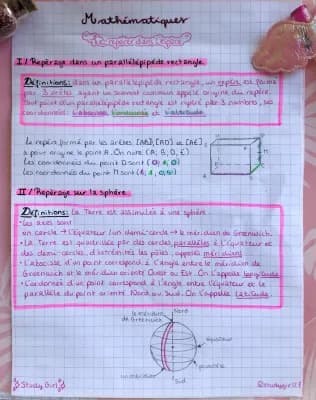 Mathématiques
Se repérer dans l'espace
I / Repérage dans un parallélépipède rectangle
Définitions: dans un parallélépipède rectangle, un repère est formé
par 3 arêtes ayant un sommet commun appelé origine du repère.
Tout point d'un parallélépipède rectangle est repéré par 3 nombres, ses
coordonnées: l'abscisse, l'ordonnée et l'altitude.
Le repère formé par les arêtes [AB], [AD] et [AE]
a pour origine le point A. On note (A; B; D; E)
Les coordonnées du point D sont (0; 1; 0)
Les coordonnées du point M sont (1; 1; 0,5)
II / Repérage sur la sphère
Définitions: La Terre est assimilée à une sphère.
• Les axes sont
un cercle → l'équateur / un demi-cercle → le méridien de Greenwich.
• La Terre est quadrillée par des cercles parallèles à l'équateur et
des demi-cercles, d'extrémités les pôles, appelés méridiens
• L'abscisse d'un point correspond à l'angle entre le méridien de
Greenwich et le méridien orienté Ouest ou Est. On l'appelle longitude
• L'ordonnée d'un point correspond à l'angle entre l'équateur et le
parallèle du point orienté Nord ou Sud. On l'appelle latitude.
le méridien
de Greenwich
Nord
équateur
parallèle
un méridien
Sud
Study Girl
@studygirl